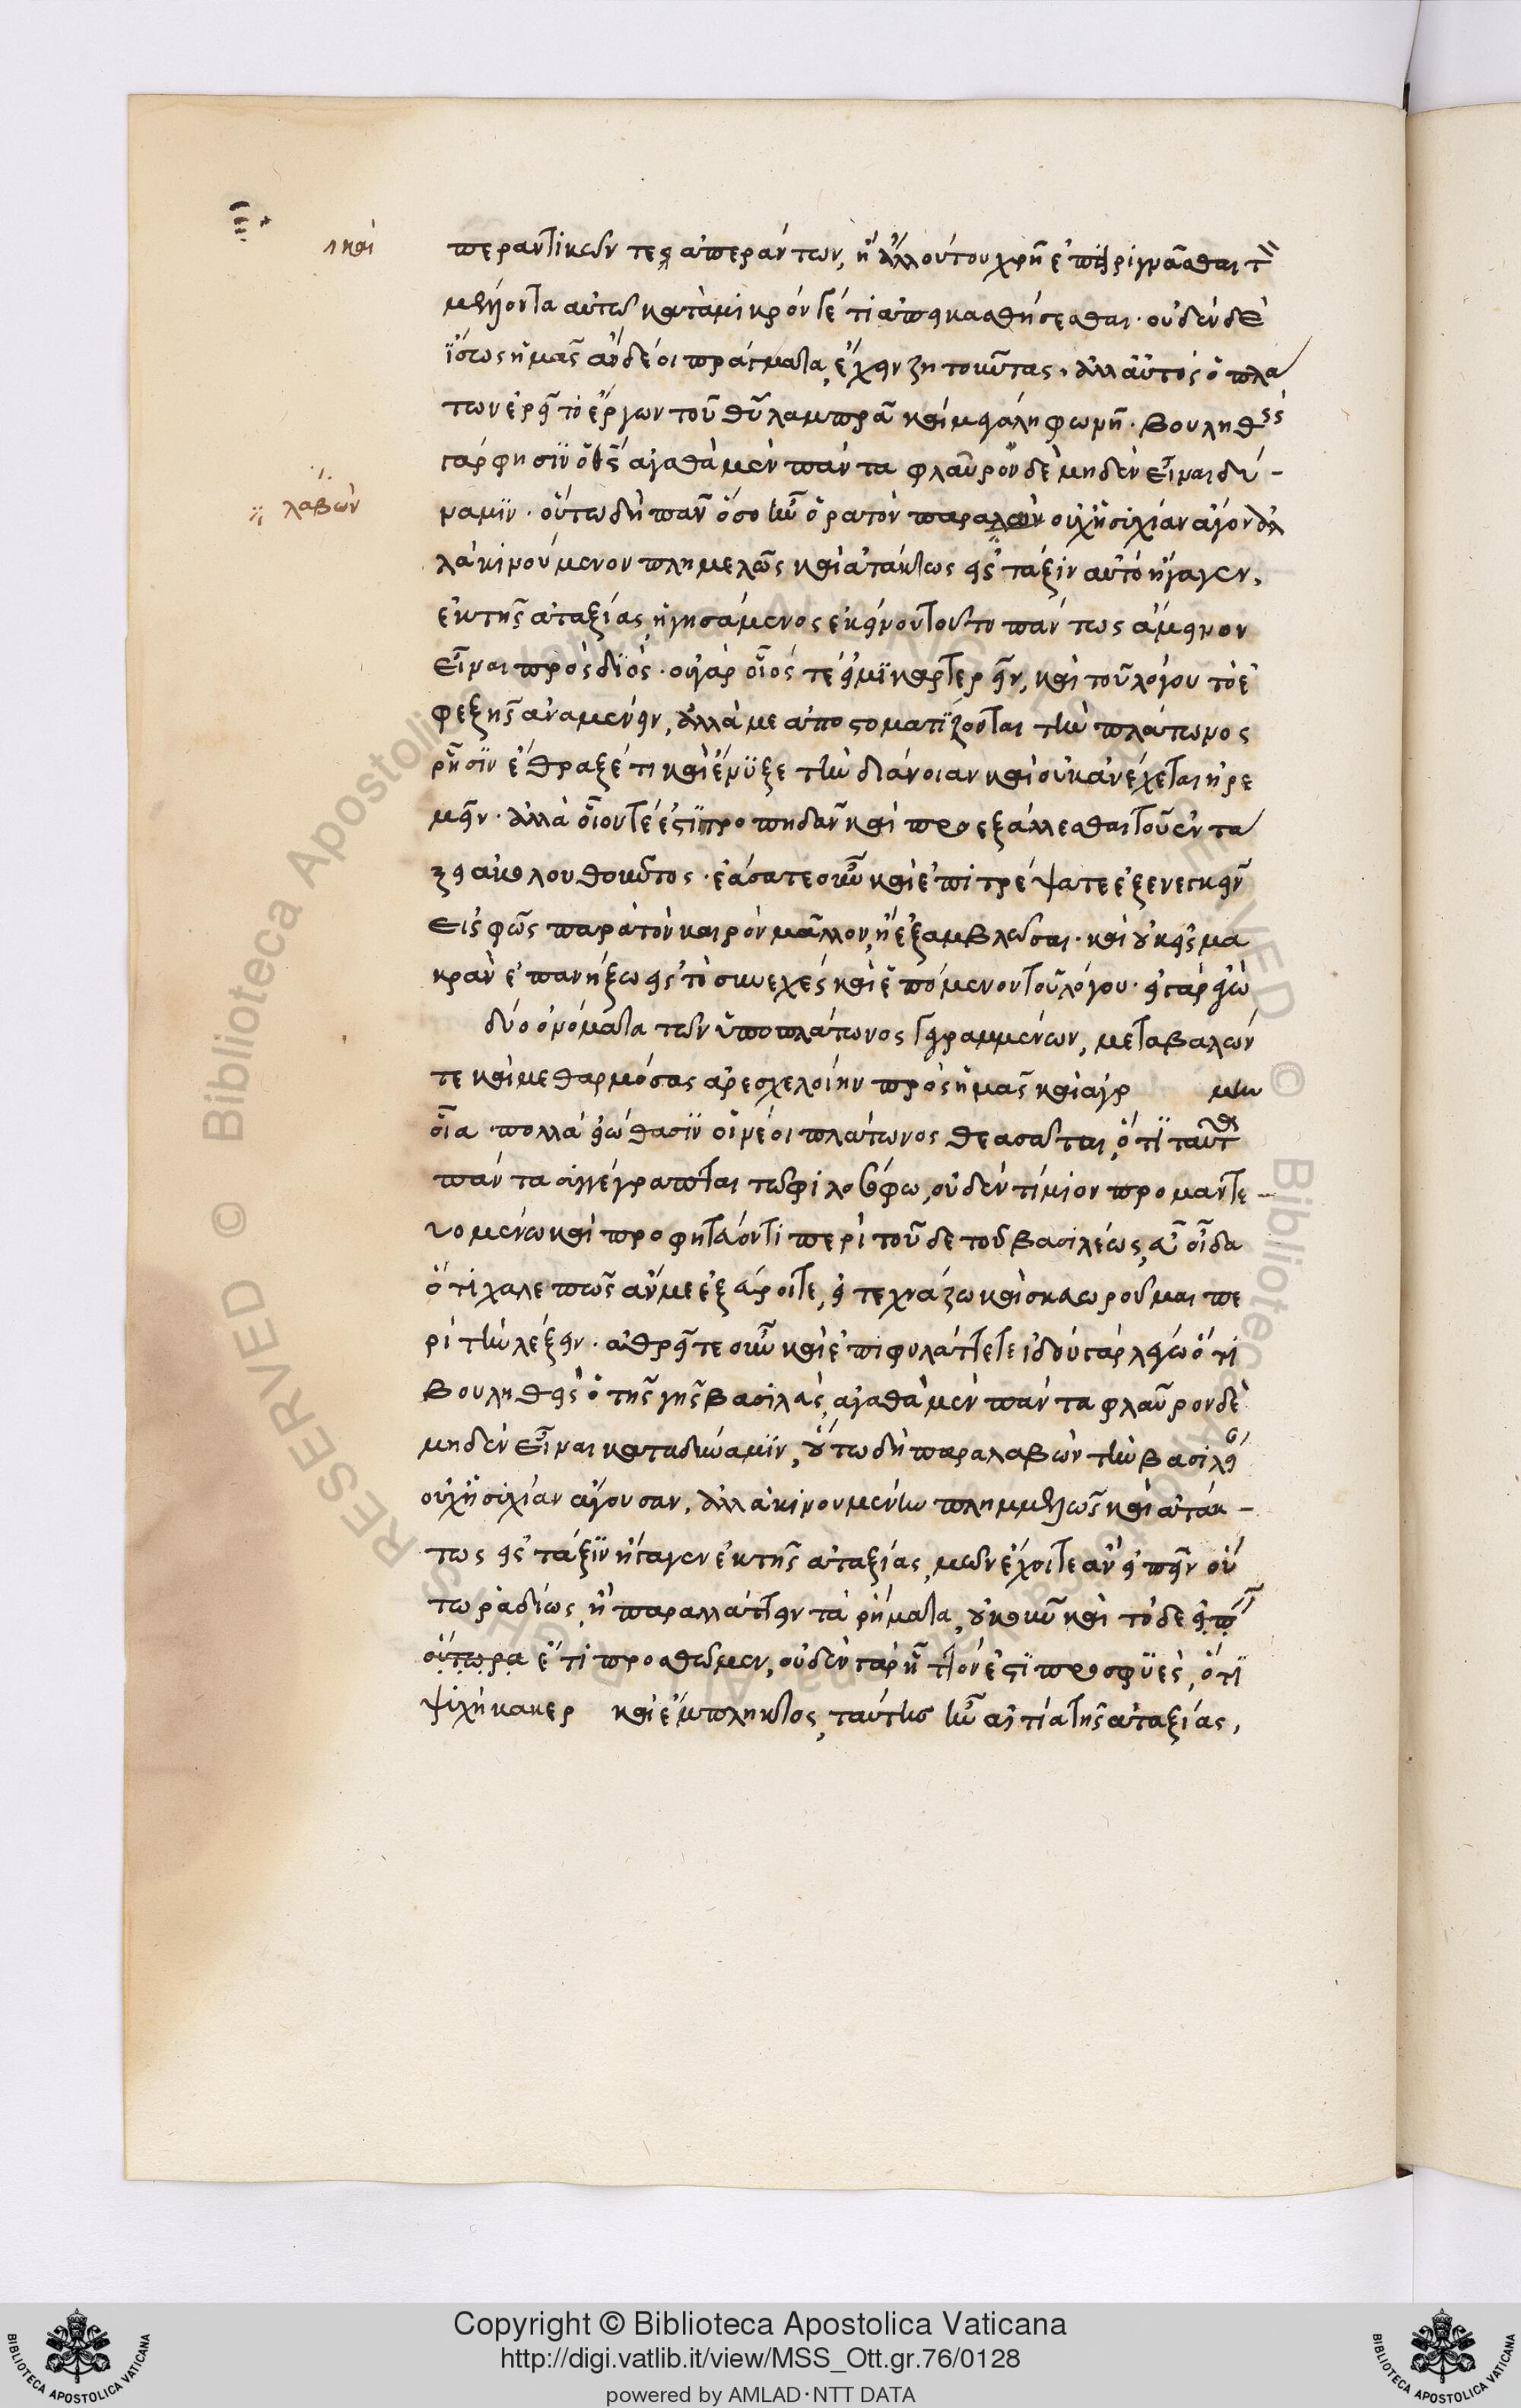 καὶ
περαντικῶν τε ἀπεράντων, ἢ ἄλλου του χρὴ ἐπιγράψασθαι τῇ
μέλλοντα αὐτῶ κατὰ μικρόν γέ τι ἀπεικασθήσεσθαι· οὐδὲν δὲ
ἴσως ἡμᾶς ἂν δέοι πράγματα, ἔχειν ζητοῦντας, ἀλλ' αὐτὸς ὁ πλά
των ἐρεῖ τὸ ἔργον τοῦ θῦ λαμπρᾶ καὶ μεγάλη φωνῆ· βουληθεὶς
γάρ φησιν ὁ θς ἀγαθὰ μὲν πάντα φλαῦρον δὲ μηδὲν εἶναι δύ-
λαβὼν
ναμιν· οὕτω δὴ πᾶν ὅσον ἦν ὁρατὸν παραλαὼν οὐχ ἡσυχίαν ἄγον ἀλ
λὰ κινούμενον πλημελῶς καὶ ἀτάκτως εἰς τάξιν αὐτὸ ἤγαγεν,
ἐκ τῆς ἀταξίας, ἡγησάμενος ἐκείνου τοῦτο πάντως ἄμεινον
εἶναι πρὸς διός· οὐ γὰρ οἷός τέ εἰμι καρτερεῖν, καὶ τοῦ λόγου τὸ ἐ
φεξῆς ἀναμένειν, ἀλλά με ἀποστοματίζοντα τὴν πλάτωνος
ῥῆσιν ἔθραξέ τι καὶ ἔνυξε τὴν διάνοιαν καὶ οὐκ ἀνέχεται ἠρε
μεῖν· ἀλλὰ οἷόν τέ ἐστι προπηδᾶν καὶ προεξάλλεσθαι τοῦ ἐν τά
ξει ἀκολουθοῦντος· ἐάσατε οὖν καὶ ἐπιτρέψατε ἐξενεγκεῖν
εἰς φῶς παρὰ τὸν καιρὸν μᾶλλον, ἢ ἐξαμβλῶσαι· καὶ οὐκ εἰς μα
κρὰν ἐπανήξω εἰς τὸ συνεχὲς καὶ ἑπόμενον τοῦ λόγου· εἰ γὰρ ἐγὼ
δύο ὀνόματα τῶν ὑπὸ πλάτωνος γεγραμμένων, μεταβαλών
τε καὶ μεθαρμόσας ἀρεσχελοίην πρὸς ἡμᾶς καὶ ἀγρ μην
οἷα πολλὰ εἰώθασιν οἱ νέοι πλάτωνος θεασῶται, ὅτι ταῦτα
πάντα συγγέγραπται τῶ φιλοσόφω, οὐδέν τι μὶον προμαντε-
υομένω καὶ προφητεύοντι περὶ τοῦδε τοῦ βασιλέως, εὖ οἶδα
ὅτι χαλεπῶς ἄν με ἐξεύροιτε, εἰ τεχνάζω καὶ σκαιωροῦμαι πε
ρὶ τὴν λέξιν· ἀθρεῖτε οὖν καὶ ἐπιφυλάττετε ἰδοὺ γὰρ λέγω ὅτι
βουληθεὶς ὁ τῆς γῆς βασιλεὺς, ἀγαθὰ μὲν πάντα φλαῦρον δὲ
μηδὲν εἶναι κατὰ δύναμιν, οὕτω δὴ παραλαβὼν τὴν βασιλεί
οὐχ ἡσυχίαν ἄγουσαν, ἀλλὰ κινουμένην πλημμελῶς καὶ ἀτάκ-
τως εἰς τάξιν ἤγαγεν ἐκ τῆς ἀταξίας, μῶν ἔχοιτε ἂν εἰπεῖν οὕ
τω ῥαδίως, ἢ παραλλάττειν τὰ ῥήματα, οὐκοῦν καὶ τόδε εἰπ
οὔπωρα ἔτι προσθῶμεν, οὐδὲν γὰρ ἧττόν ἐστι προσφυὲς, ὅτι
ψυχὴ κακερ καὶ ἔμπληκτος, ταύτης ἦν αἰτία τῆς ἀταξίας,
Copyright © Biblioteca Apostolica Vaticana
http://digi.vatlib.it/view/MSS_Ott.gr.76/0128
powered by AMLAD·NTT DATA